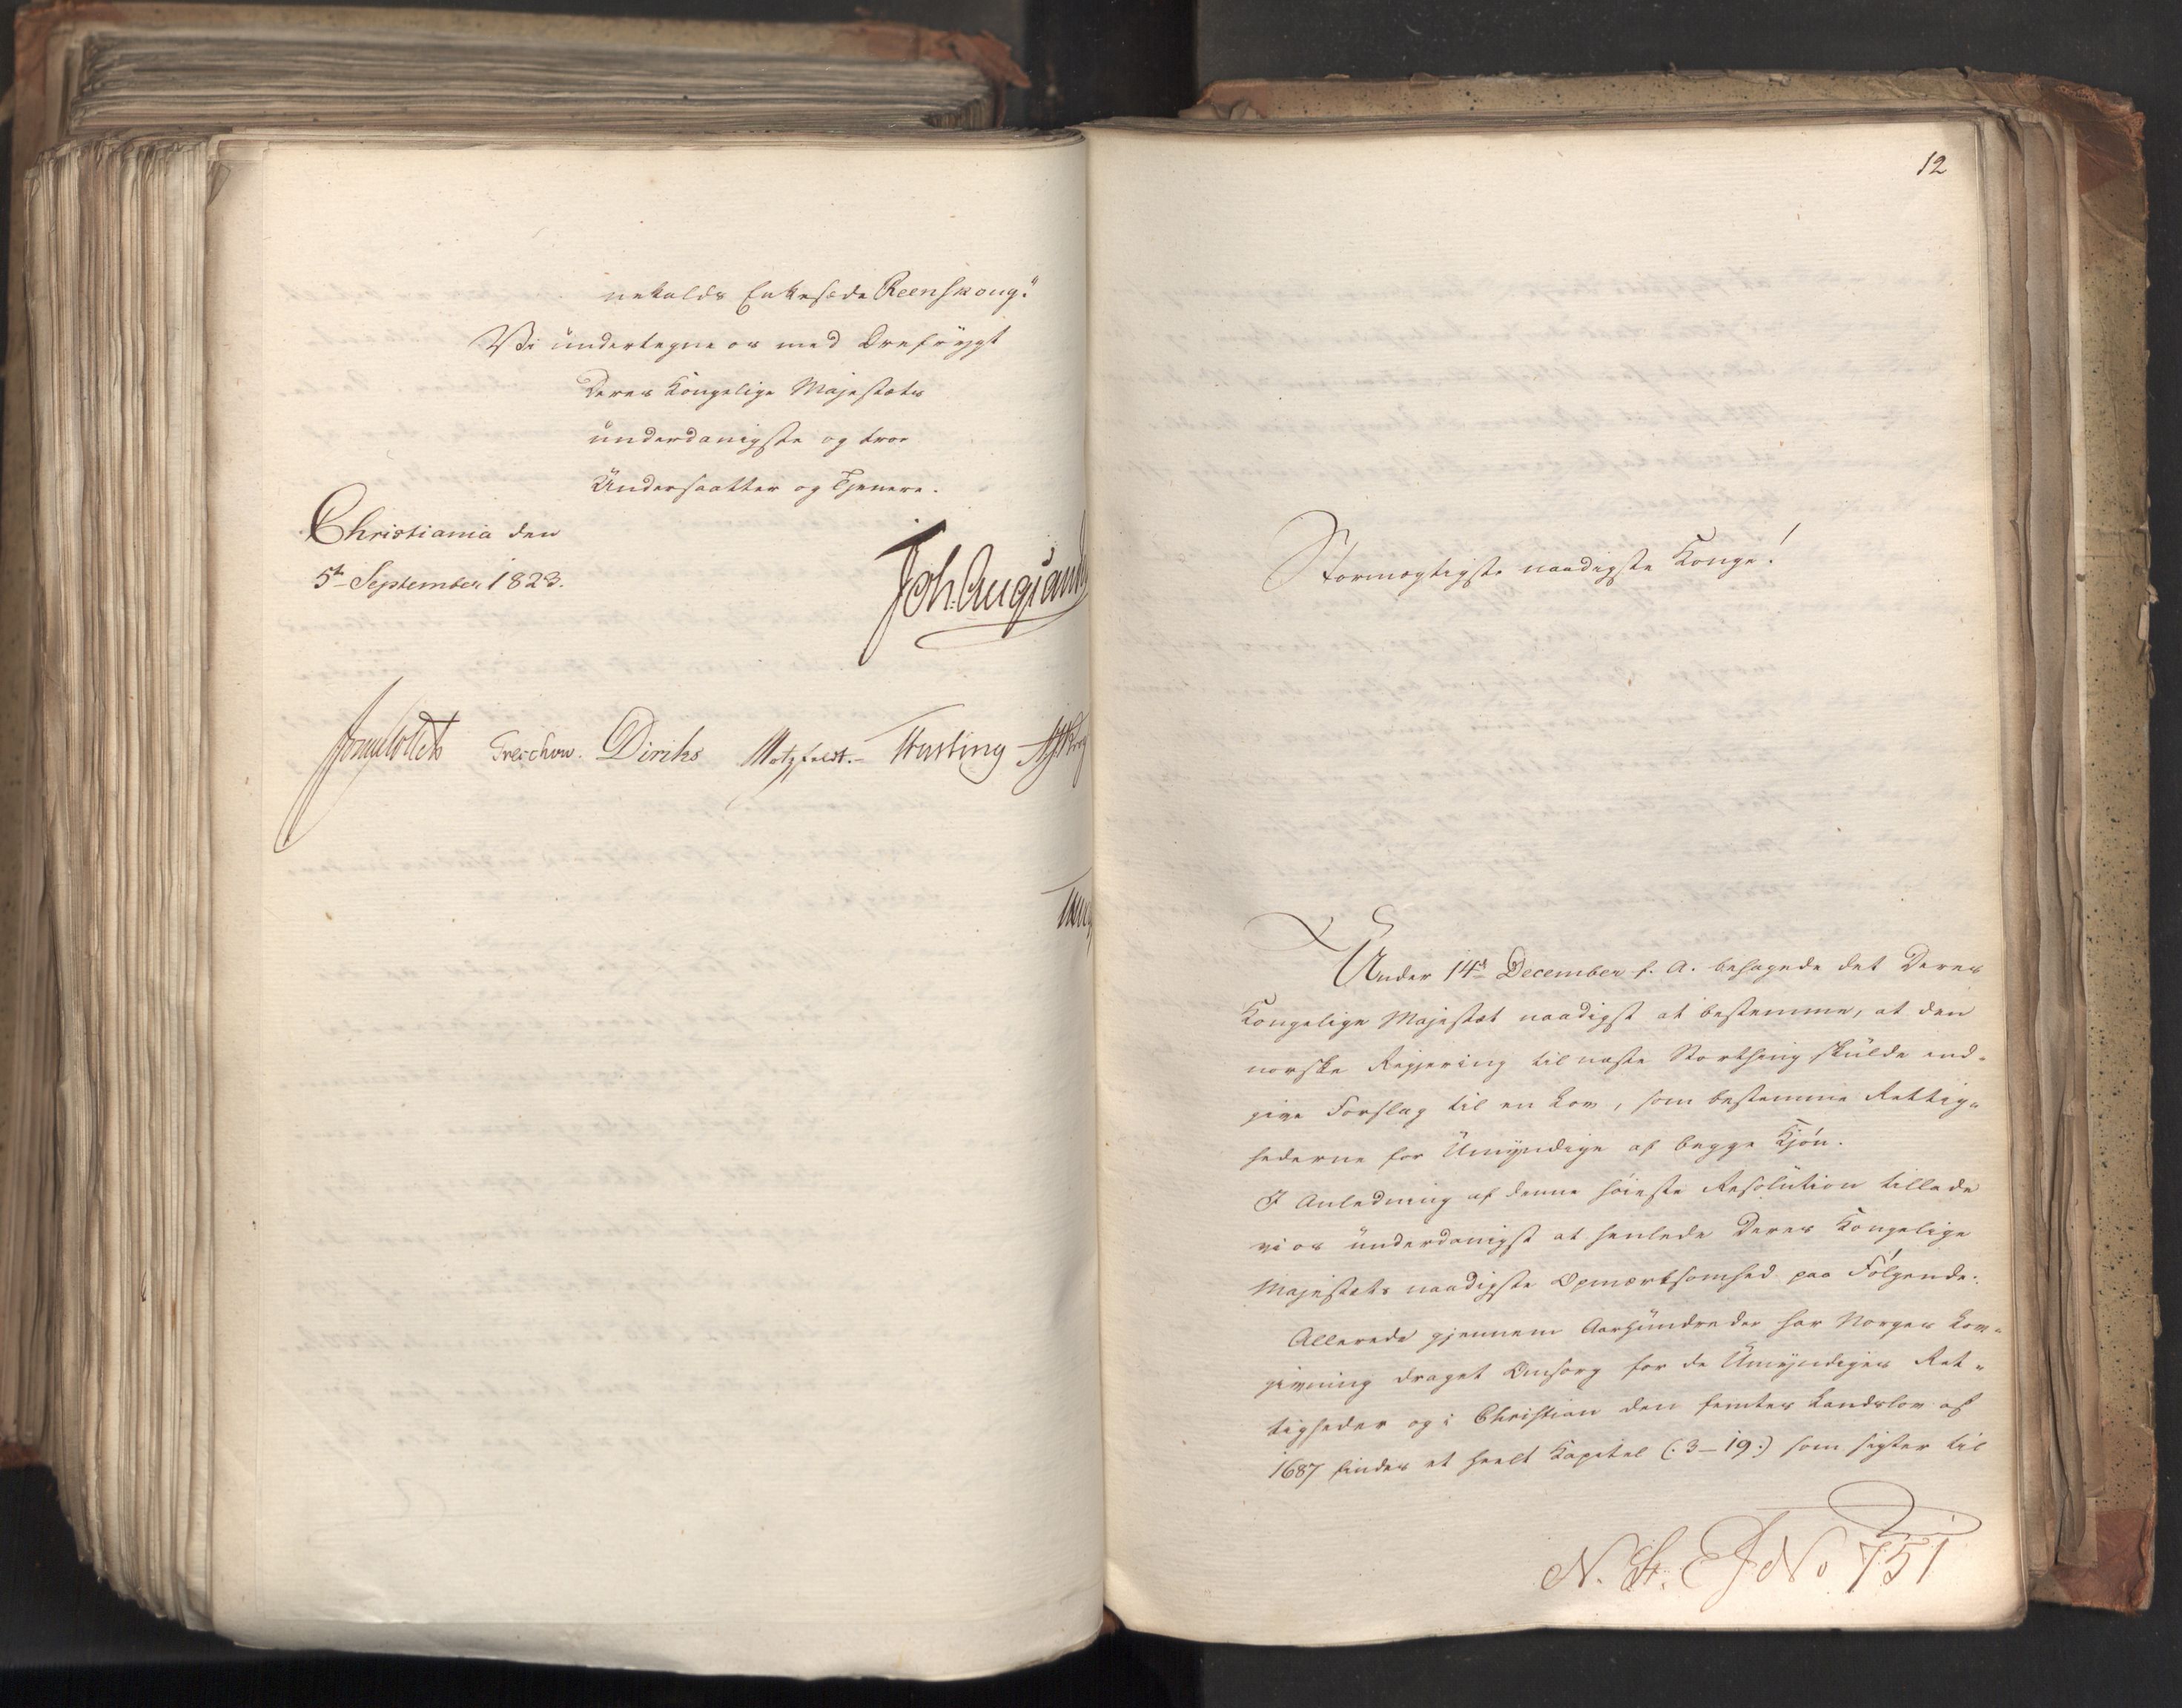 Enkesæde Reenskoug."
Vi undertegne os med Ærefrygt
Deres Kongelige Majestæts
underdanigste og troe
Undersaatter og Tjenere.
Christiania den
5te September 1823.
Joh. Aug. Sandels
Jonas Collett Treschow. Diriks Motzfeldt. Fasting Krog
12
Stormægtigste naadigste Konge!
Under 14de December f. A. behagede det Deres
Kongelige Majestæt naadigst at bestemme, at den
norske Regjering til næste Storthing skulde ind-
give Forslag til en Lov, som bestemme Rettig-
hederne for Umyndige af begge Kjøn.
I Anledning af denne høieste Resolution tillade
vi os underdanigst at henlede Deres Kongelige
Majestæts naadigste Opmærksomhed paa Følgende:
Allerede gjennem Aarhundreder har Norges Lov-
givning draget Omsorg for de Umyndiges Ret-
tigheder og i Christian den femtes Landslov af
1687 findes et heelt Kapitel (: 3-19 :) som sigter til
N. St. E J No 751